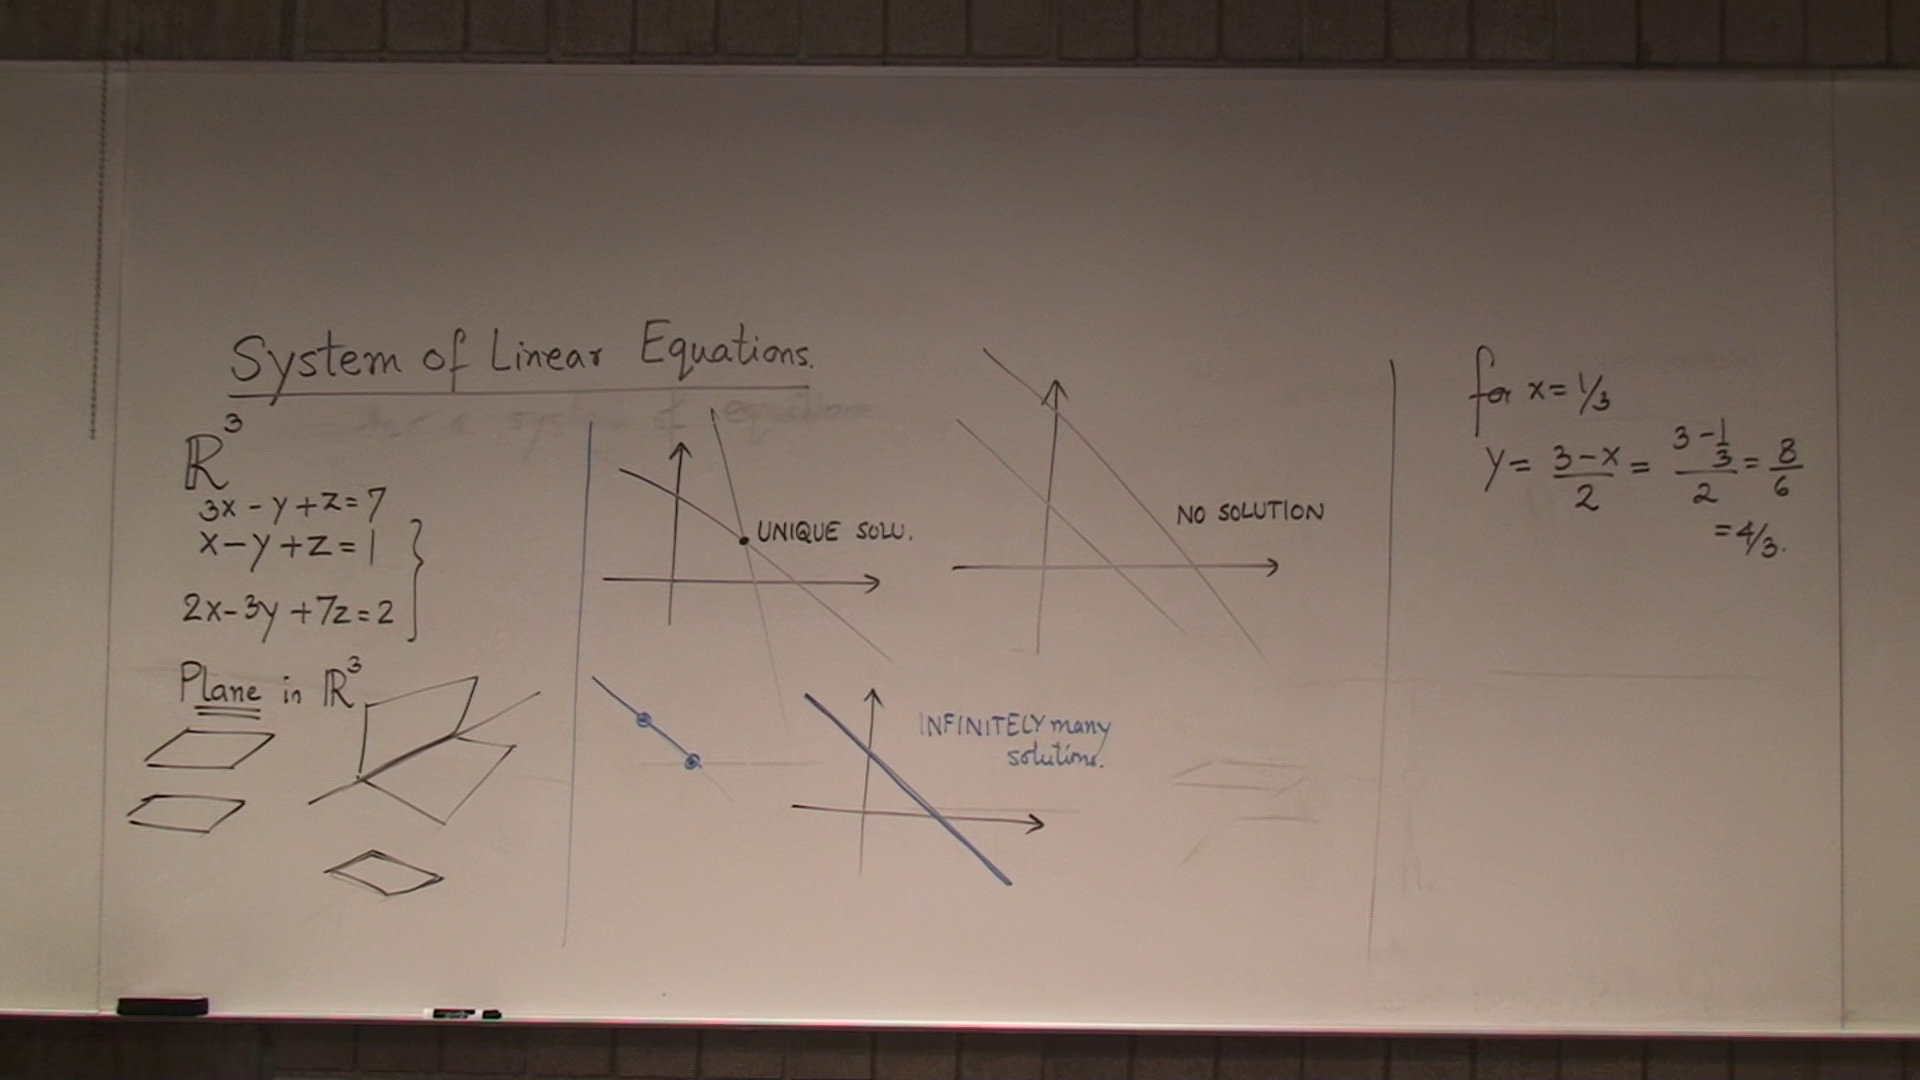 System of Linear Equations.
ℝ³
3x - y + z = 7
x - y + z = 1
2x - 3y + 7z = 2
Plane in ℝ³
UNIQUE SOLU.
NO SOLUTION
INFINITELY many
solutions.
for x = 1/3
y = (3 - x)/2 = (3 - 1/3)/2 = 8/6
= 4/3.